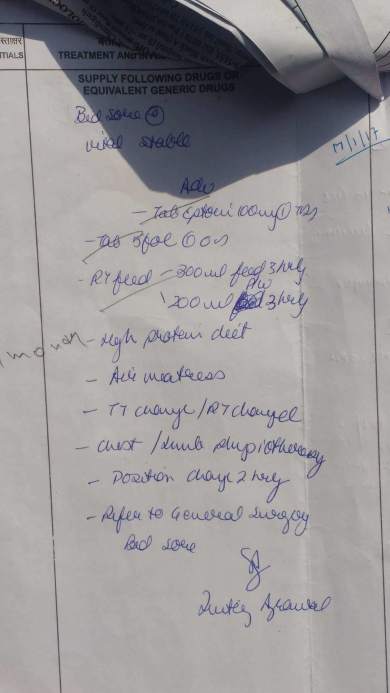 TIALS
TREATMENT AND INV
SUPPLY FOLLOWING DRUGS OR
EQUIVALENT GENERIC DRUGS
Bed sore
vital stable
7/1/17
Adv
- Tab Eptoin 100mg ① TDS
- Tab 3fol ① OD
- RT feed - 300 ml feed 3 hrly
200 ml 3 hrly
- High protein diet
- Air matress
- TT change / RT change
- chest / limb physiotherapy
- Position change 2 hrly
- Refer to General Surgery
Bed sore